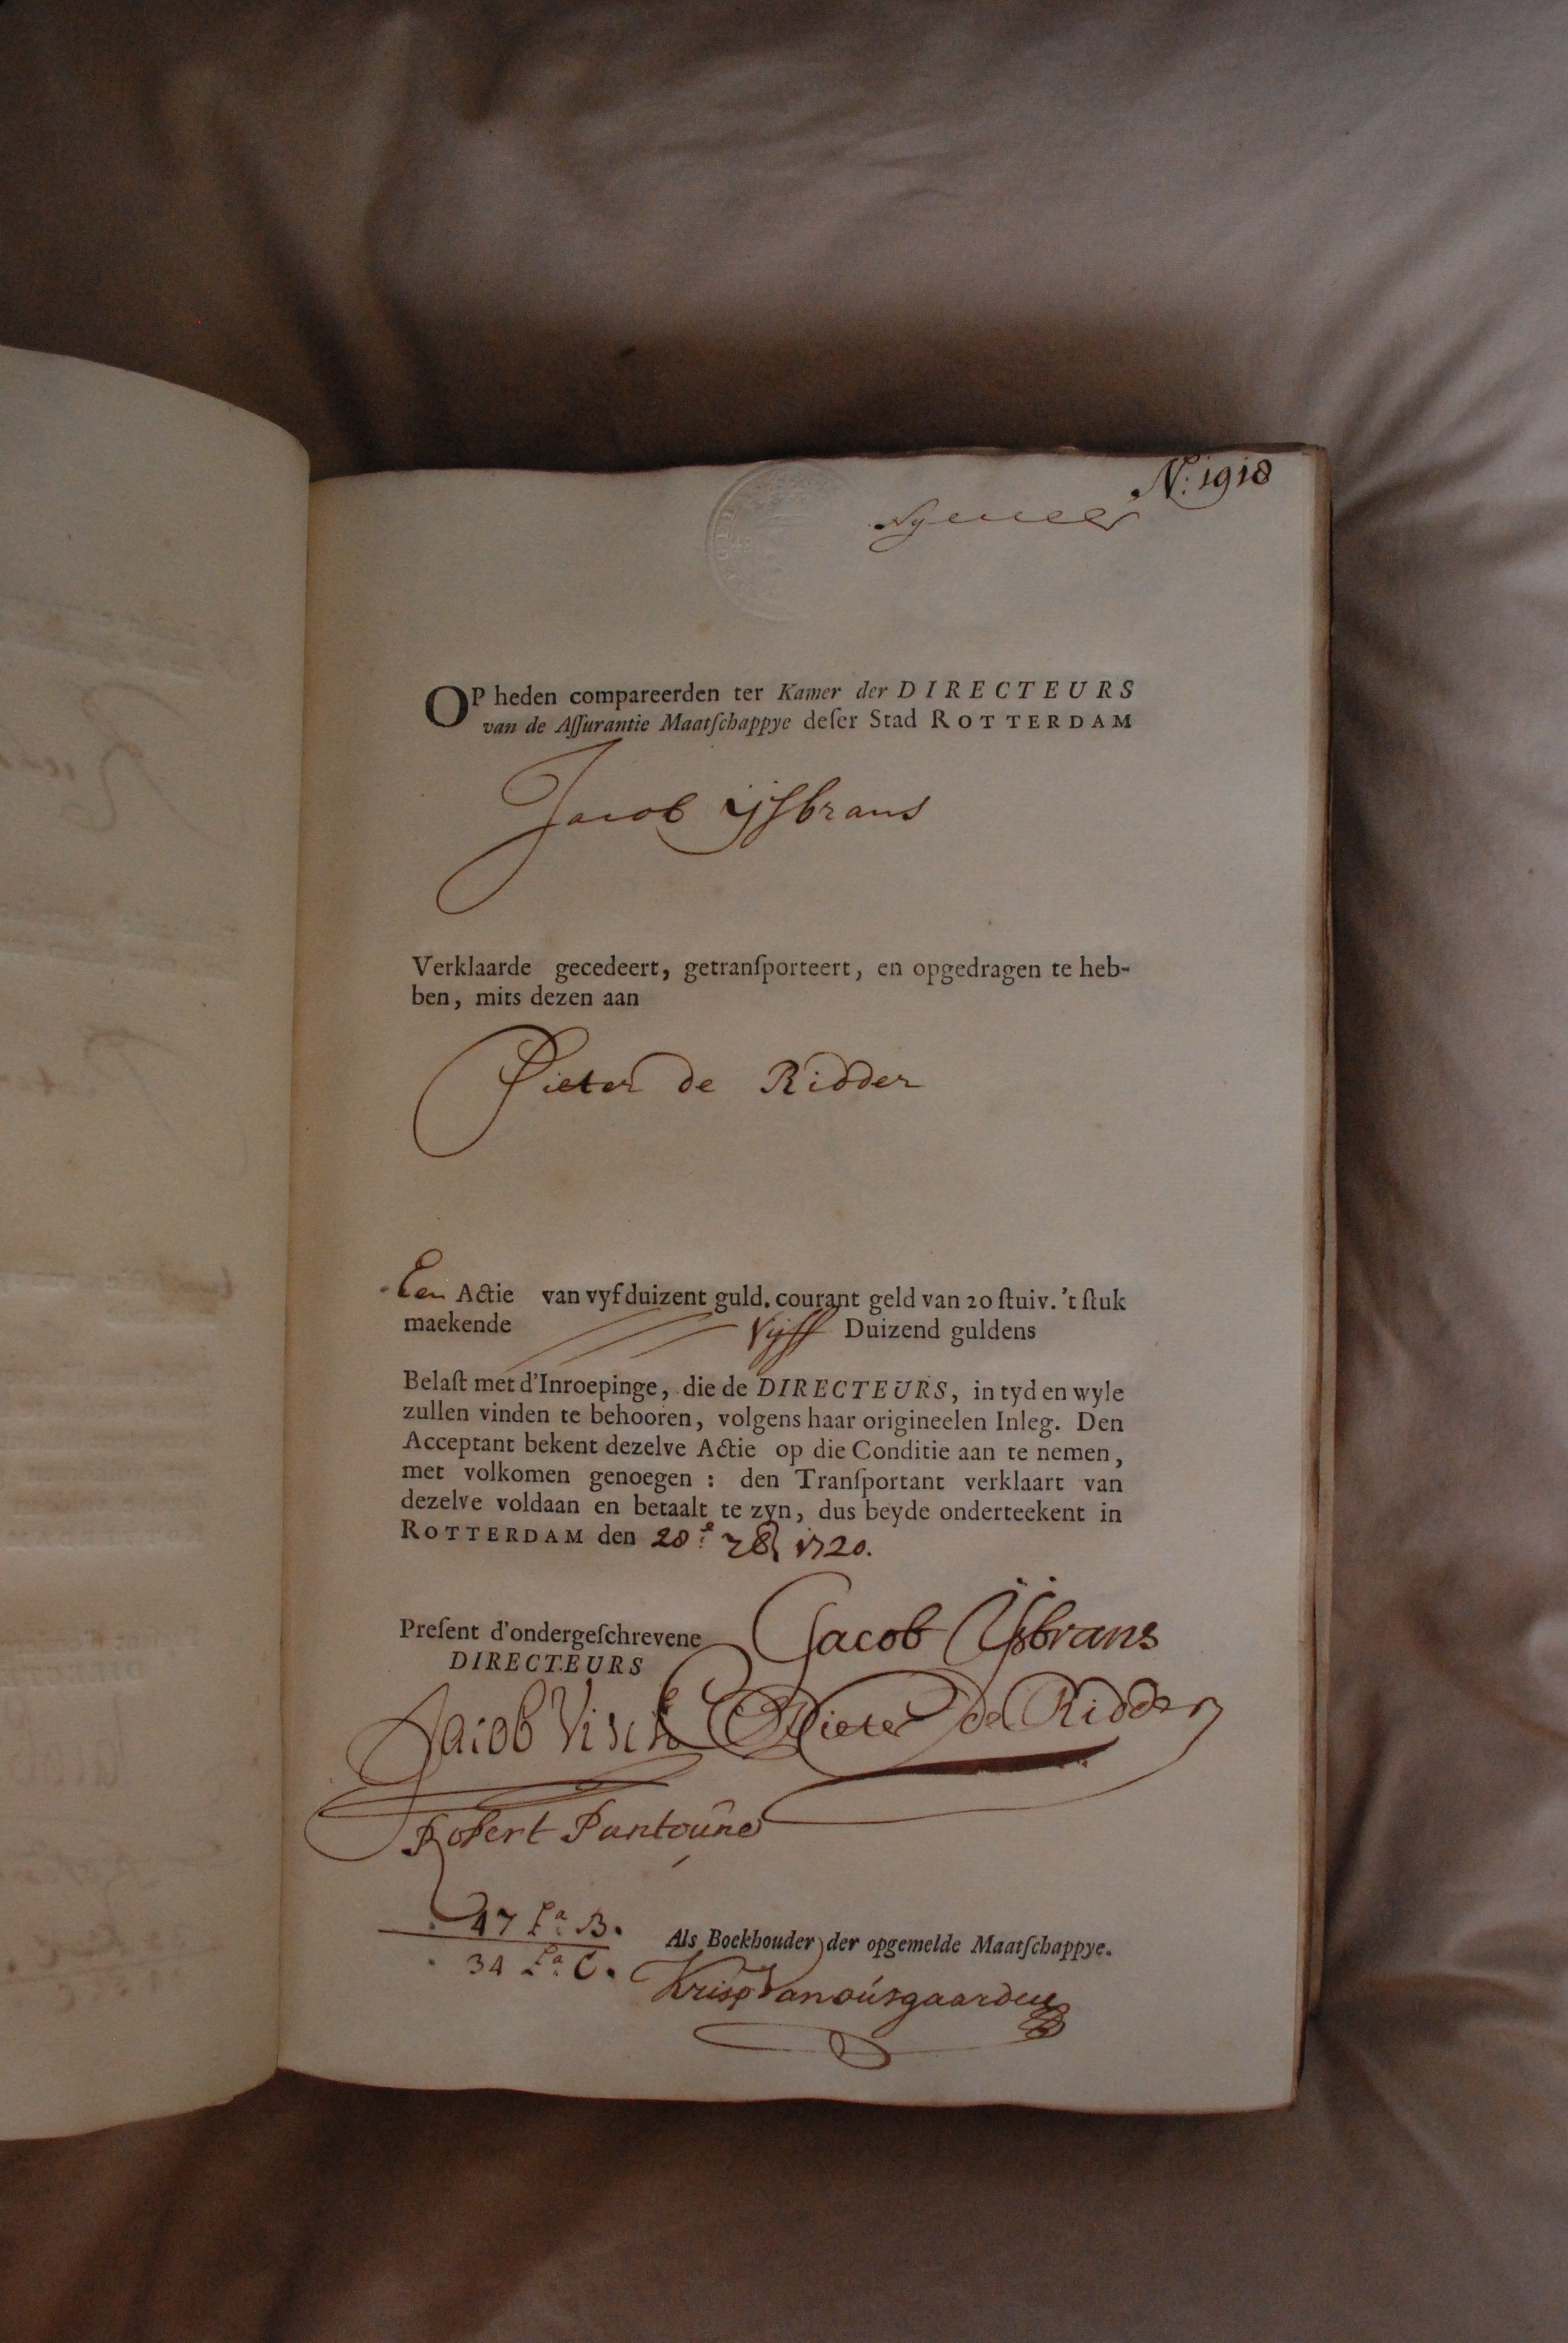 N.º 1918
OP heden compareerden ter Kamer der DIRECTEURS
van de Aſſurantie Maatſchappye deſer Stad ROTTERDAM
Jacob ijsbrans
Verklaarde gecedeert, getranſporteert, en opgedragen te heb-
ben, mits dezen aan
Pieter de Ridder
Een Actie van vyfduizent guld. courant geld van 20 ſtuiv. 't ſtuk
maekende Vijff Duizend guldens
Belaſt met d'Inroepinge, die de DIRECTEURS, in tyd en wyle
zullen vinden te behooren, volgens haar origineelen Inleg. Den
Acceptant bekent dezelve Actie op die Conditie aan te nemen,
met volkomen genoegen : den Tranſportant verklaart van
dezelve voldaan en betaalt te zyn, dus beyde onderteekent in
ROTTERDAM den 28.e 7br 1720.
Preſent d'ondergeſchrevene
DIRECTEURS
Jacob Ysbrans
Jacob Visch
Pieter de Ridder
Robert
47 La B.
34 La C.
Als Boekhouder der opgemelde Maatſchappye.